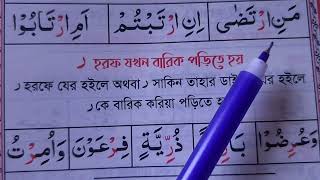 مَنِ ارْتَضٰى اِنِ ارْتَبْتُمْ اَمِ ارْتَابُوْا
ر হরফ যখন বারিক পড়িতে হয়
ر হরফে যের হইলে অথবা ر সাকিন তাহার ডাই হইলে
ر কে বারিক করিয়া পড়িতে
وَعُرِضُوْا ذُرِّيَّةٌ فِرْعَوْنَ وَاُمِرْتُ